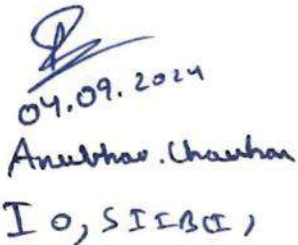 04.09.2024
Anubhav. Chauhan
IO, SIIB(I),